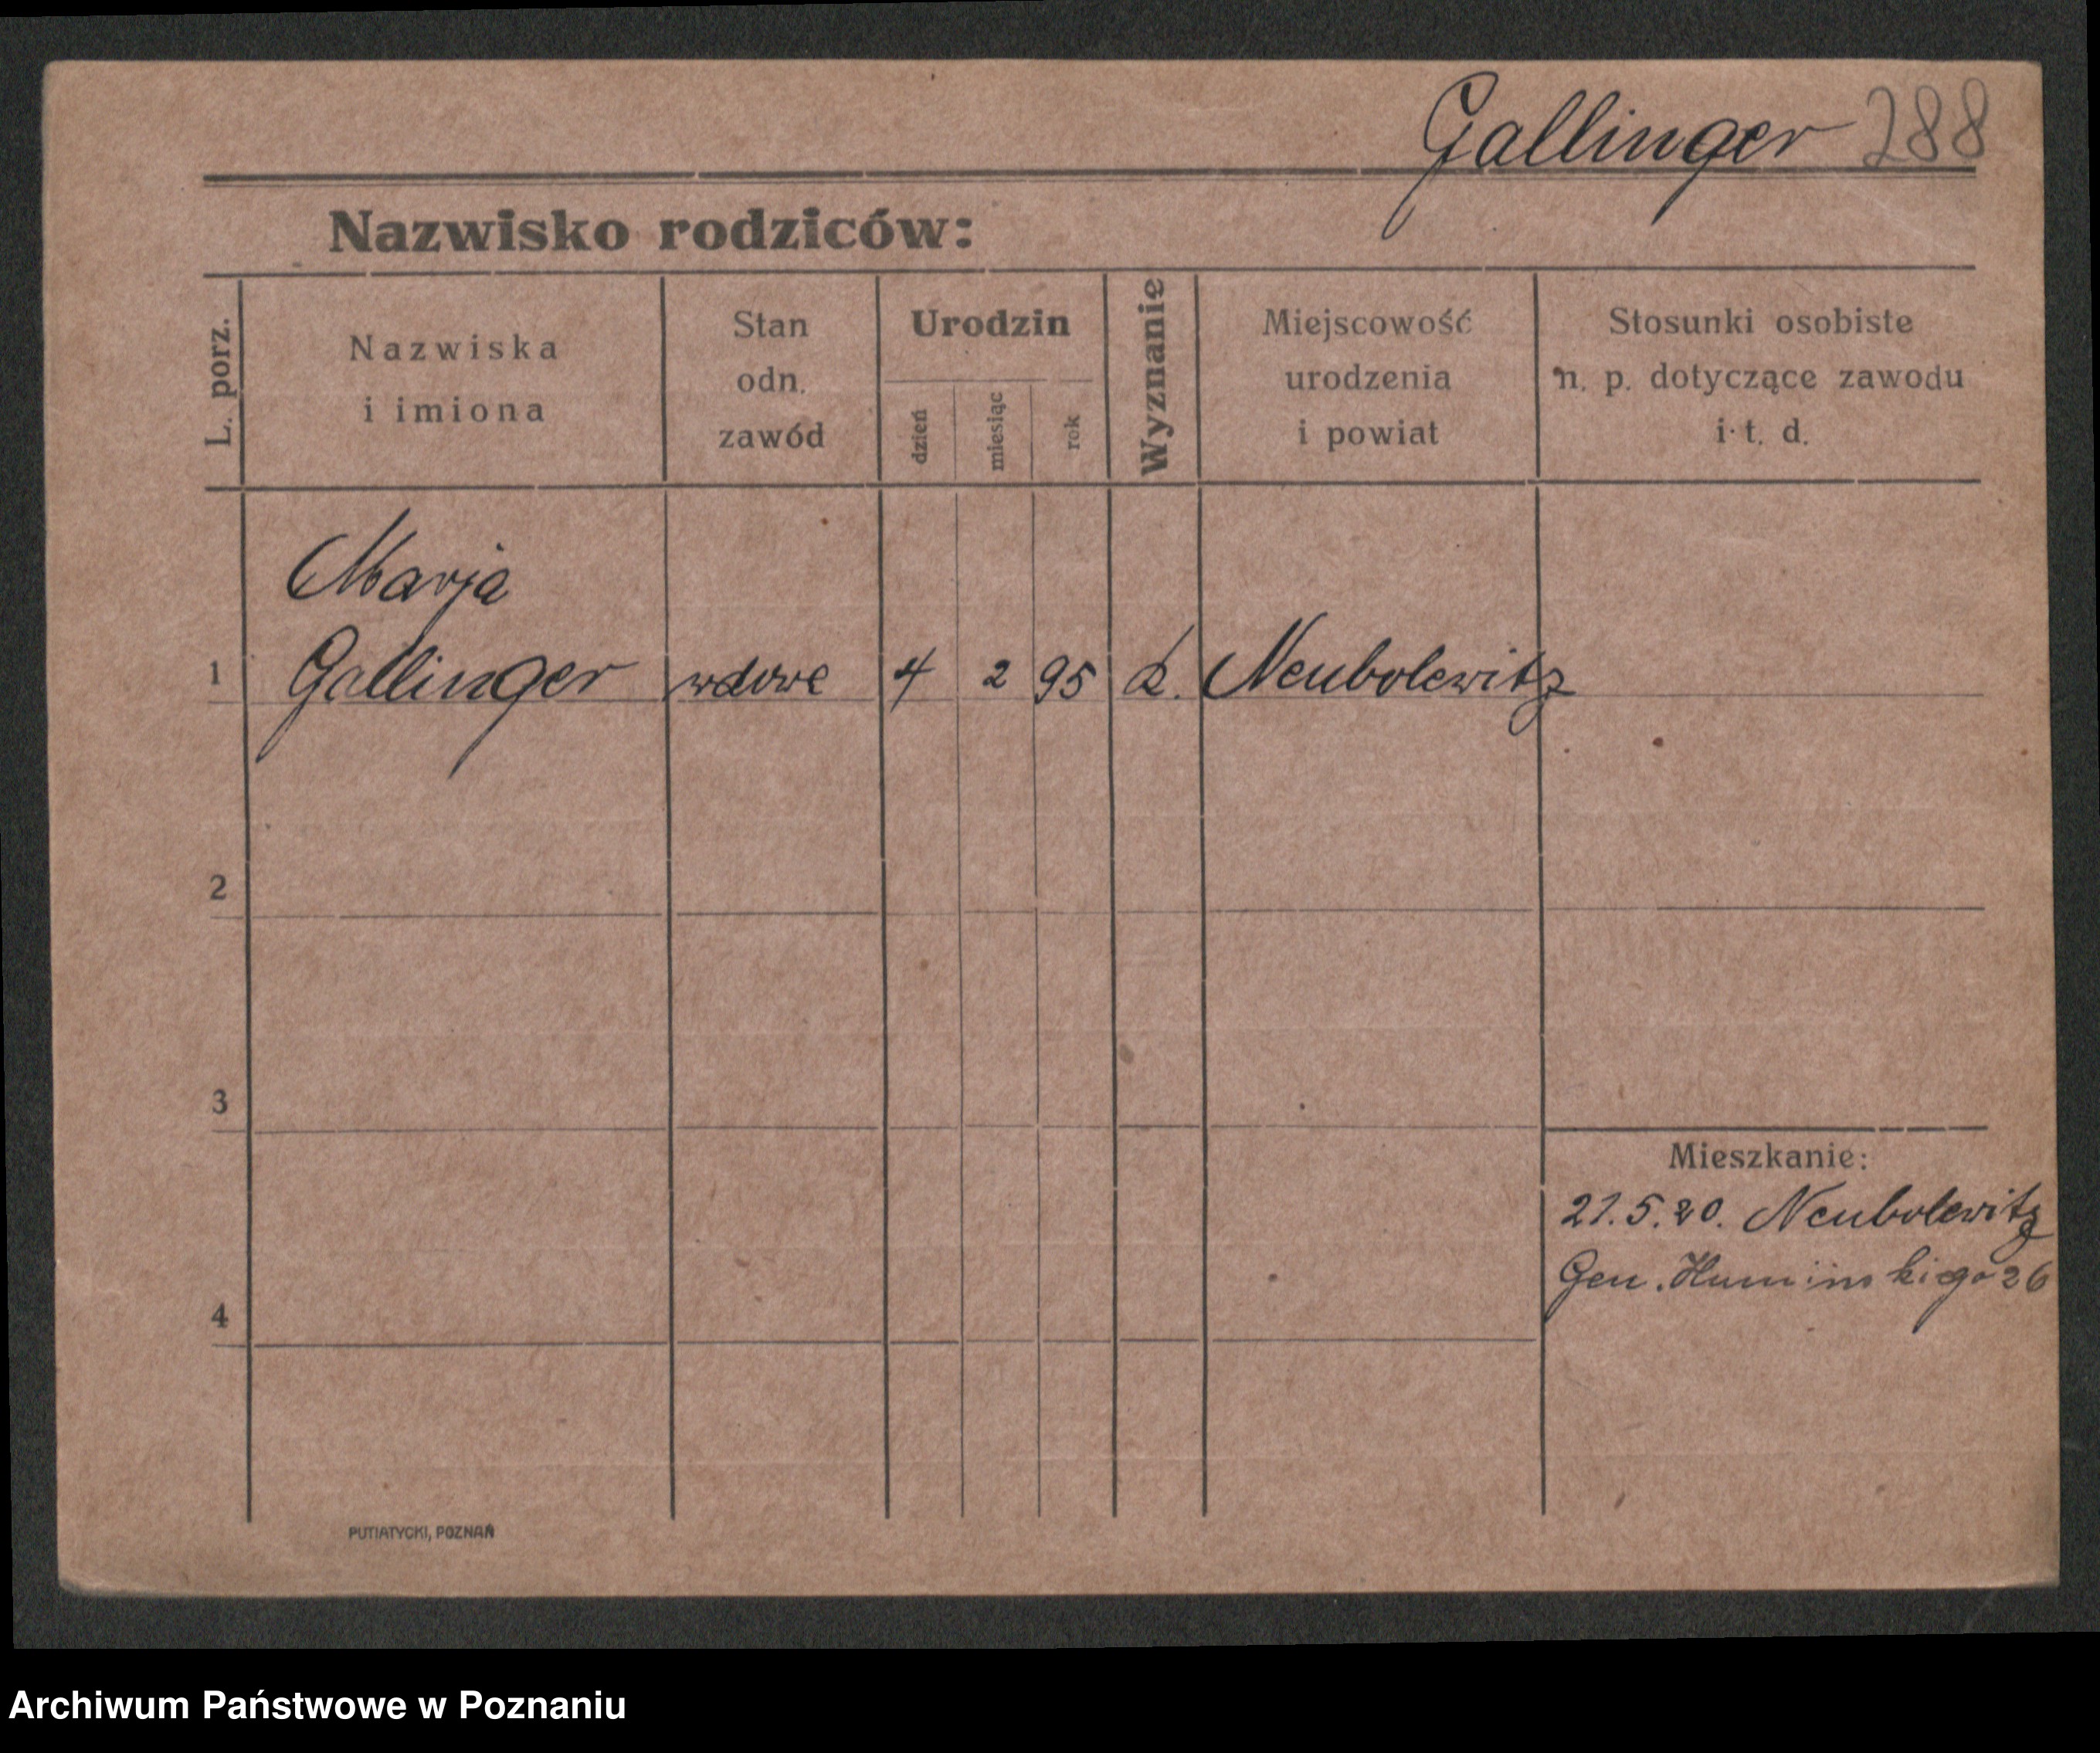 Gallinger 288
Nazwisko rodziców:
L. porz.
Nazwiska
i imiona
Stan
odn.
zawód
Urodzin
dzień
miesiąc
rok
Wyznanie
Miejscowość
urodzenia
i powiat
Stosunki osobiste
n. p. dotyczące zawodu
i t. d.
Marja
1 Gallinger wdowa 4 2 95 k. Neubolewitz
2
3
Mieszkanie:
21.5.20. Neubolewitz
Gen. 26
4
PUTIATYCKI, POZNAŃ
Archiwum Państwowe w Poznaniu